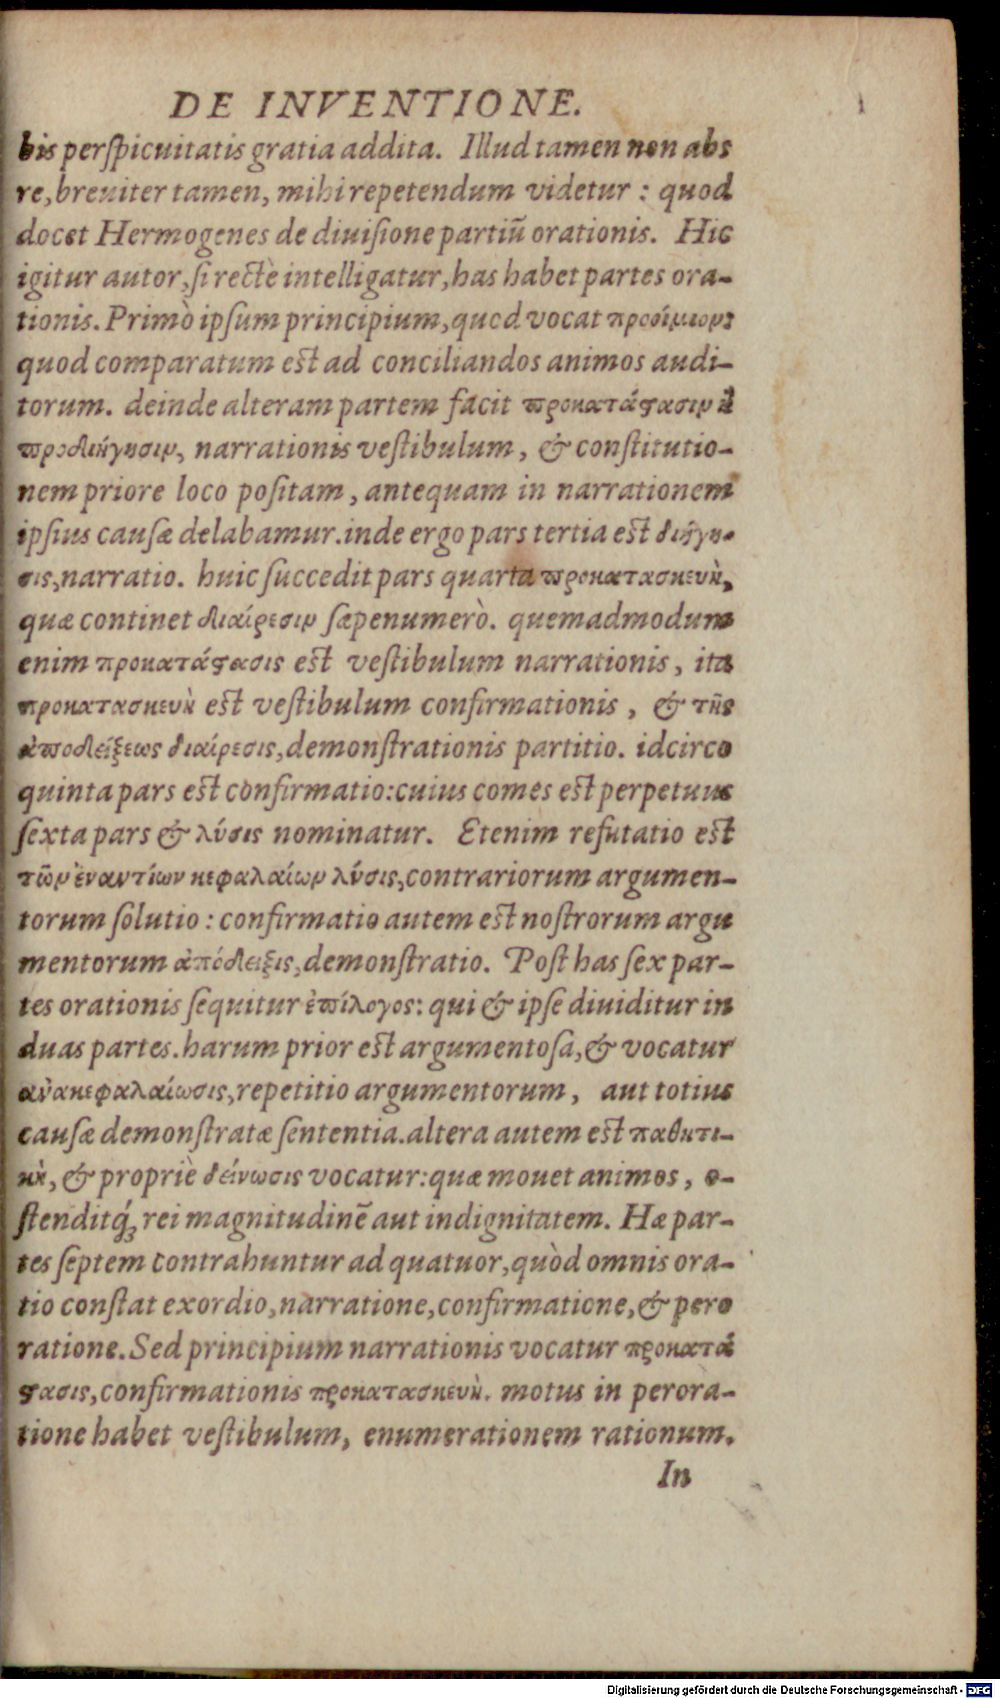 DE INVENTIONE.
1
bis perſpicuitatis gratia addita. Illud tamen non abs
re, breuiter tamen, mihi repetendum videtur : quod
docet Hermogenes de diuiſione partiū orationis. Hic
igitur autor, ſi rectè intelligatur, has habet partes ora-
tionis. Primò ipſum principium, quod vocat προοίμιον:
quod comparatum est ad conciliandos animos audi-
torum. deinde alteram partem facit προκατάϛασιν ἢ
προδιήγησιν, narrationis veſtibulum, & conſtitutio-
nem priore loco poſitam, antequam in narrationem
ipſius cauſæ delabamur. inde ergo pars tertia est διήγη-
σις, narratio. huic ſuccedit pars quarta προκατασκευὴ,
quæ continet διαίρεσιν ſæpenumerò. quemadmodum
enim προκατάϛασις est veſtibulum narrationis, ita
προκατασκευὴ est veſtibulum confirmationis, & τῆς
ἀποδείξεως διαίρεσις, demonſtrationis partitio. idcirco
quinta pars est confirmatio: cuius comes est perpetuus
ſexta pars & λύσις nominatur. Etenim refutatio est
τῶν ἐναντίων κεφαλαίων λύσις, contrariorum argumen-
torum ſolutio : confirmatio autem est noſtrorum argu
mentorum ἀπόδειξις, demonſtratio. Post has ſex par-
tes orationis ſequitur ἐπίλογος: qui & ipſe diuiditur in
duas partes. harum prior est argumentoſa, & vocatur
ἀνακεφαλαίωσις, repetitio argumentorum, aut totius
cauſæ demonſtratæ ſententia. altera autem est παθητι-
κὴ, & propriè δείνωσις vocatur: quæ mouet animos, o-
ſtenditq́ꝫ rei magnitudinē aut indignitatem. Hæ par-
tes ſeptem contrahuntur ad quatuor, quòd omnis ora-
tio conſtat exordio, narratione, confirmatione, & pero
ratione. Sed principium narrationis vocatur προκατά
ϛασις, confirmationis προκατασκευὴ. motus in perora-
tione habet veſtibulum, enumerationem rationum.
In
Digitalisierung gefördert durch die Deutsche Forschungsgemeinschaft - DFG